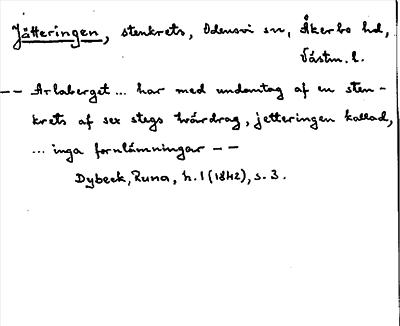 Jätteringen, stenkrets, Odensvi sn, Åkerbo hd,
Västm. l.
-- Arlaberget ... har med undantag af en sten-
krets af sex stegs tvärdrag, jetteringen kallad,
... inga fornlämningar --
Dybeck, Runa, h. 1 (1842), s. 3.